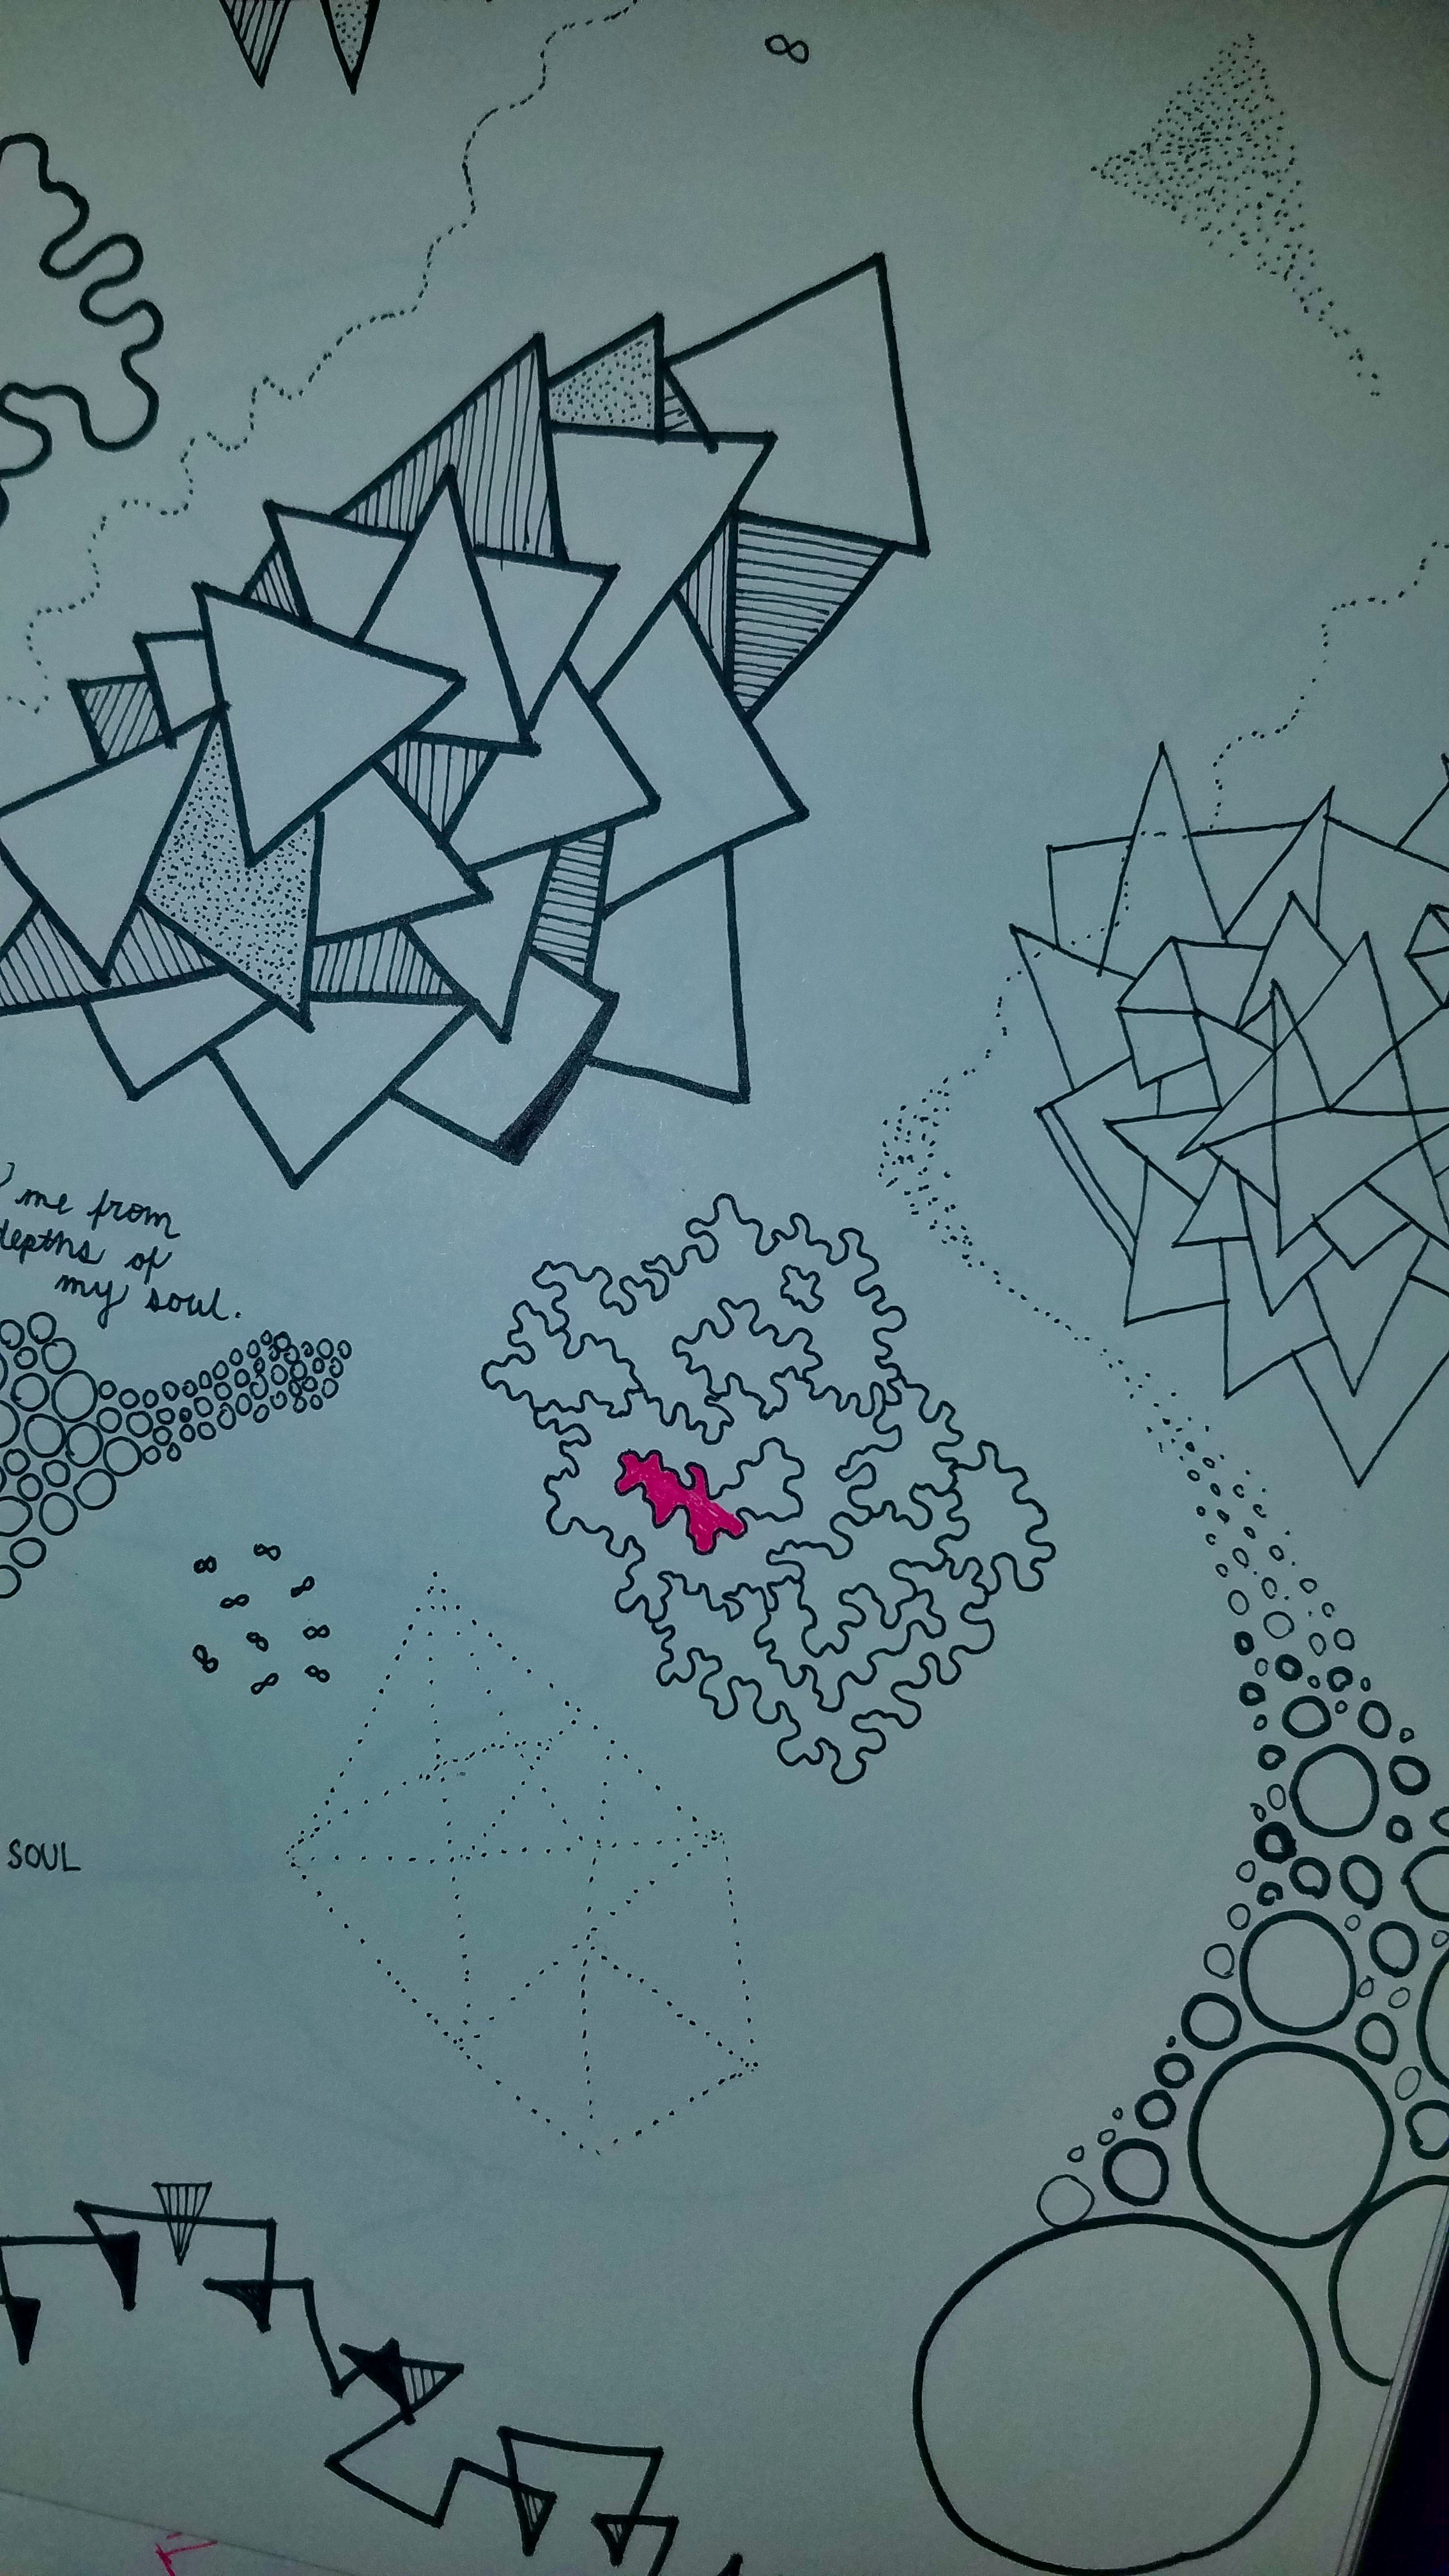 me from
depths of
my soul.
SOUL